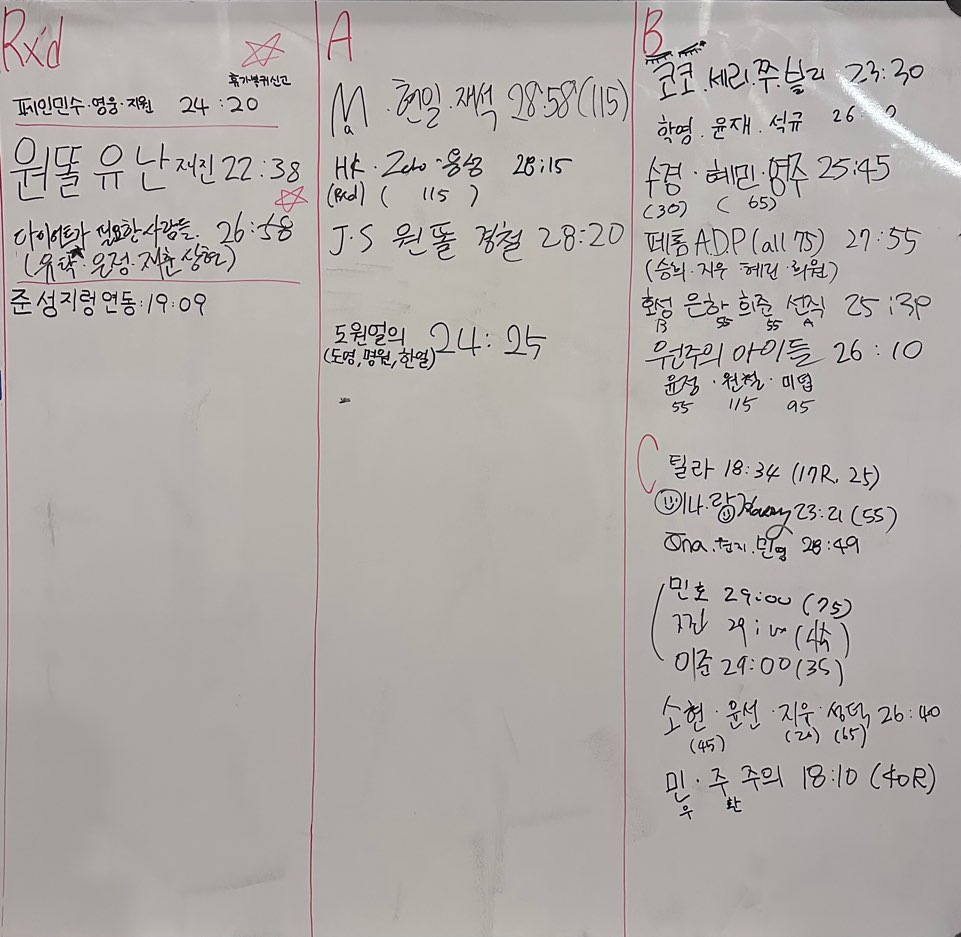 Rx'd
휴가복귀신고
페인민수·영웅·지원 24:20
원똘 유 난 재진 22:38
다이어트가 필요한 사람들. 26:58
(유탁·은정·재훈 상현)
준성지렁연동:19:09
A
Ma.현일.재석 28:58(115)
HK·Zero·용성 28:15
(Rxd) ( 115 )
J.S 원똘 경철 28:20
도원열의 24:25
(도영,명원,한열)
B
코코.세리.쭈.블리 23:30
학영.윤재.석규 26:
수경·혜민·영주 25:45
(30) ( 65)
페톰 A.D.P (all 75) 27:55
(승희·지우 혜진·희원)
화성 은하 희준 선직 25:39
B 55 55 A
우원주의 아이들 26:10
윤정·원철·미엽
55 115 95
C
틸라 18:34 (17R, 25)
이나.랑 Harry 23:21 (55)
Ona.현지.민영 28:49
민호 29:00 (75)
지진 29:00
이준 29:00(35)
소현·윤선·지우·성덕 26:40
(45) (20) (65)
민·주 주의 18:10 (40R)
우 환